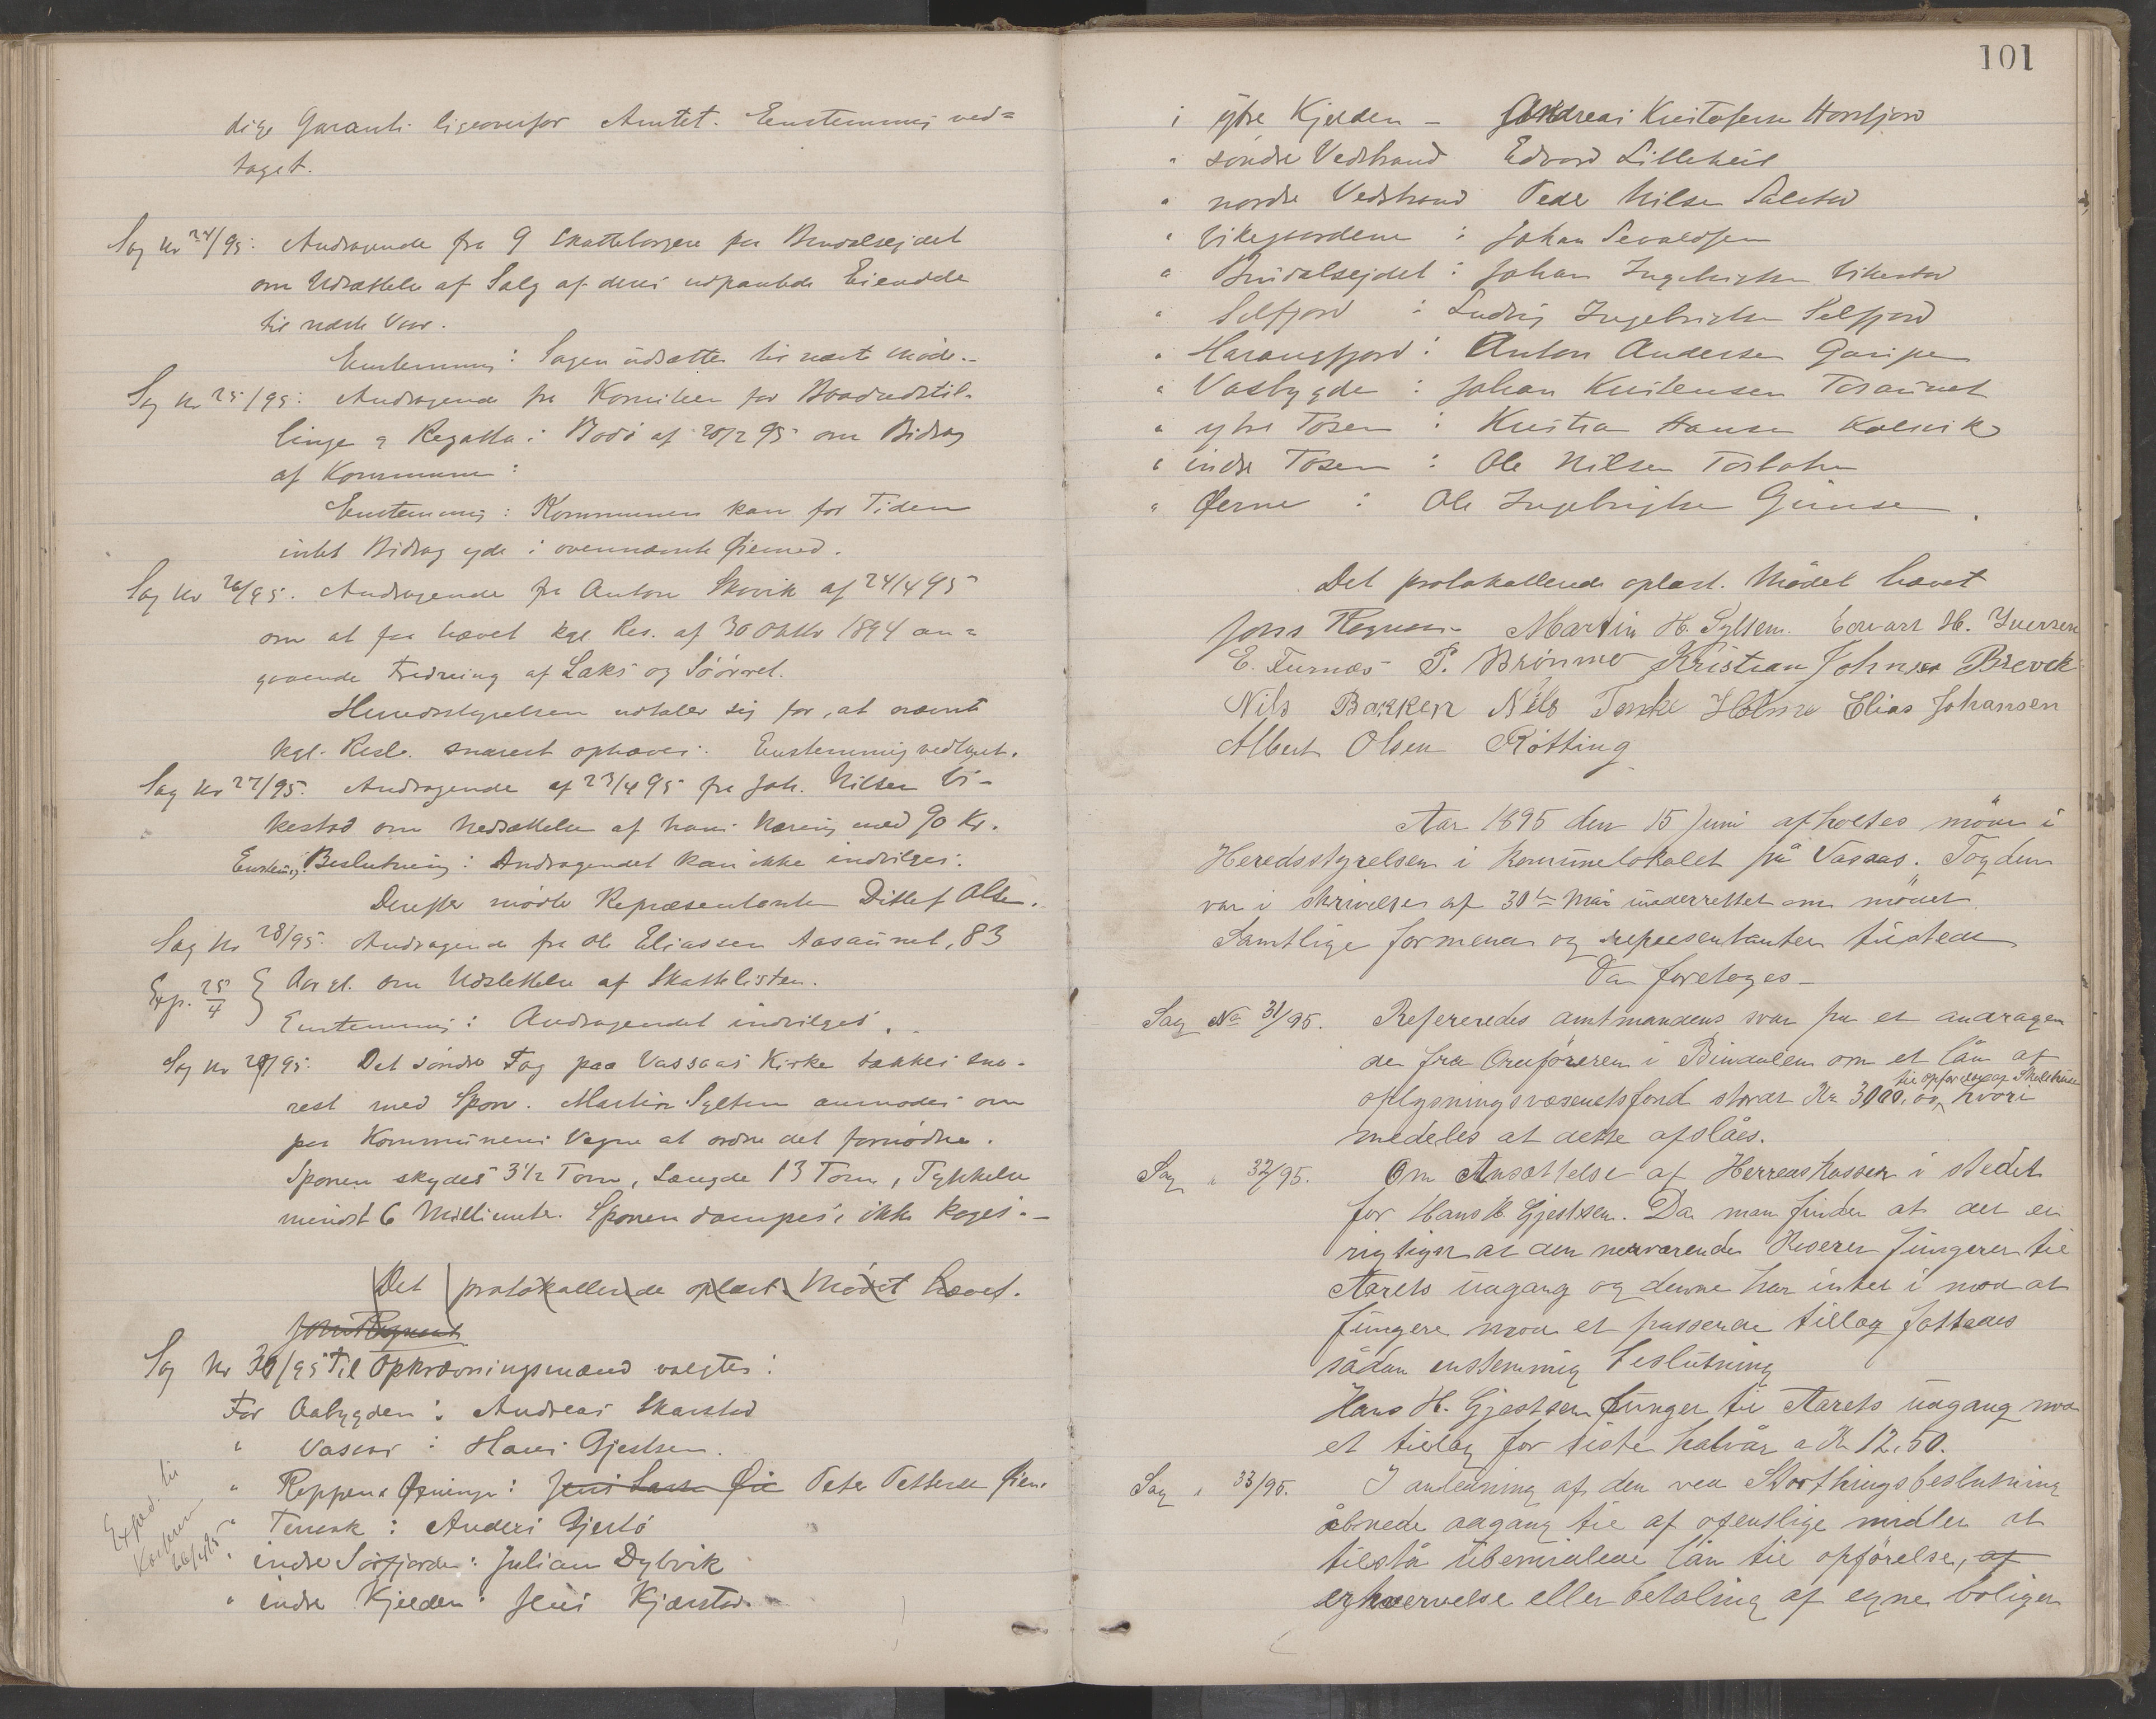 dige Garanti ligeoverfor Amtet. Eenstemmig ved=
taget.
Sag Nr 24/95: Andragende fra 9 Skatteborgere paa Bindalsejdet
om Udsættelse af Salg af deres udpantede Eiendele
til næste Vaar.
Eenstemmig: Sagen udsættes til næste Møde.-
Sag Nr 25/95: Andragende fra Komiteen for Baadudstil-
linge & Regatta i Bodø af 20/2 95 om Bidrag
af Kommunen:
Eenstemmig: Kommunen kan for Tiden
intet Bidrag yde i ovennævnte Øiemed.
Sag Nr 26/95. Andragende fra Anton Skovik af 24/4 95
om at faa hævet kgl. Res. af 30 Oktbr 1894 an=
gaaende Fredning af Laks og Søørret.
Herredsstyrelsen udtaler sig for, at nævnte
kgl. Resl. snarest ophæves. Eenstemmig vedtaget.
Sag Nr 27/95. Andragende af 23/4 95 fra Joh. Nilsen Vi-
kestad om Nedsættelse af hans Næring med 90 Kr.
Eenstemig Beslutning: Andragendet kan ikke indvilges.
Derefter mødte Repræsentanten Ditlef Olsen.
Sag Nr 28/95. Andragende fra Ole Eliassen Aasaunet, 83
Exp. 25/4 } Aar gl. om Udslettelse af Skattelisten.
Eenstemmig: Andragendet indvilges.
Sag Nr 29/95: Det søndre Tag paa Vassaas Kirke tækkes sna-
rest med Spon. Martin Sylten anmodes om
paa Kommunens Vegne at ordne det fornødne.
Sponen skydes 3½ Tom, Længde 13 Tom, Tykkelse
mindst 6 Millimeter. Sponen dampes, ikke koges.-
Det protokollerede oplæst. Mødet hævet.
Sag Nr 30/95 Til Opkrævningsmænd valgtes:
For Aabygden: Andreas Skarstad
" Vasaas: Hans Gjestsen.
" Reppen & Øsninge: Peter Pettersen Øien.
" Terraak: Anders Gjerlø
" indre Sørfjorden: Julian Dybvik
" indre Kjelden: Jens Kjærstad.
Exped. til
101
i ytre Kjelden - Andreas Kristofersen Horsfjord
" søndre Vedstrand Edvard Lilleheil
" nordre Vedstrand Peder Nilsen Salstad
" Vikegaardene: Johan Sevaldsen
" Bindalsejdet: Johan Ingebrigtsen Vikestad
" Selfjord: Ludvig Ingebrigtsen Selfjord
" Harangsfjord: Anton Andersen Garipen
" Vasbygden: Johan Kristensen Tosaunet
" ytre Tosen: Kristian Hansen Kalvik
" indre Tosen: Ole Nilsen Tosbotn
" Øerne: Ole Ingebrigtsen Gimse.
Det protokollerede oplæst. Mødet hævet
Martin H. Sylten. Edvart H. Iversen
E. Furnæs P. Brønmo Kristian Johnsen Brevek
Nils Bakken Nils Terske Holm Elias Johansen
Albert Olsen Røtting
Aar 1895 den 15 Juni afholtes møde i
Heredsstyrelsen i Komunelokalet på Vasaas. Fogden
var i skrivelse af 30te Mai underrettet om mødet
Samtlige formænd og representanter tilstede
Da foretoges -
Sag No 31/95. Refereredes amtmandens svar paa et andragen
de fra Ordføreren i Bindalen om et lån af
oplysningsvæsenetsfond stort Kr 3000, til opførelse af Skolehuse og hvori
medeles at dette afslåes.
Sag " 32/95. Om Ansættelse af Herredskasser i stedet
for Hans H. Gjestsen. Da man finder at det er
rigtigst at den nerværende Kaserer fungerer til
Aarets udgang og denne har intet i mod at
fungere mod et passende tillæg fattedes
sådan enstemmig beslutning
Hans H. Gjestsen funger til Aarets udgang mod
et tillæg for siste halvår a Kr 12.50.
Sag " 33/95. I anledning af den ved Storthingsbeslutning
åbnede adgang til af ofenslige midler at
tilstå ubemidlede lån til opførelse, af
erhvervelse eller betaling af egne boliger